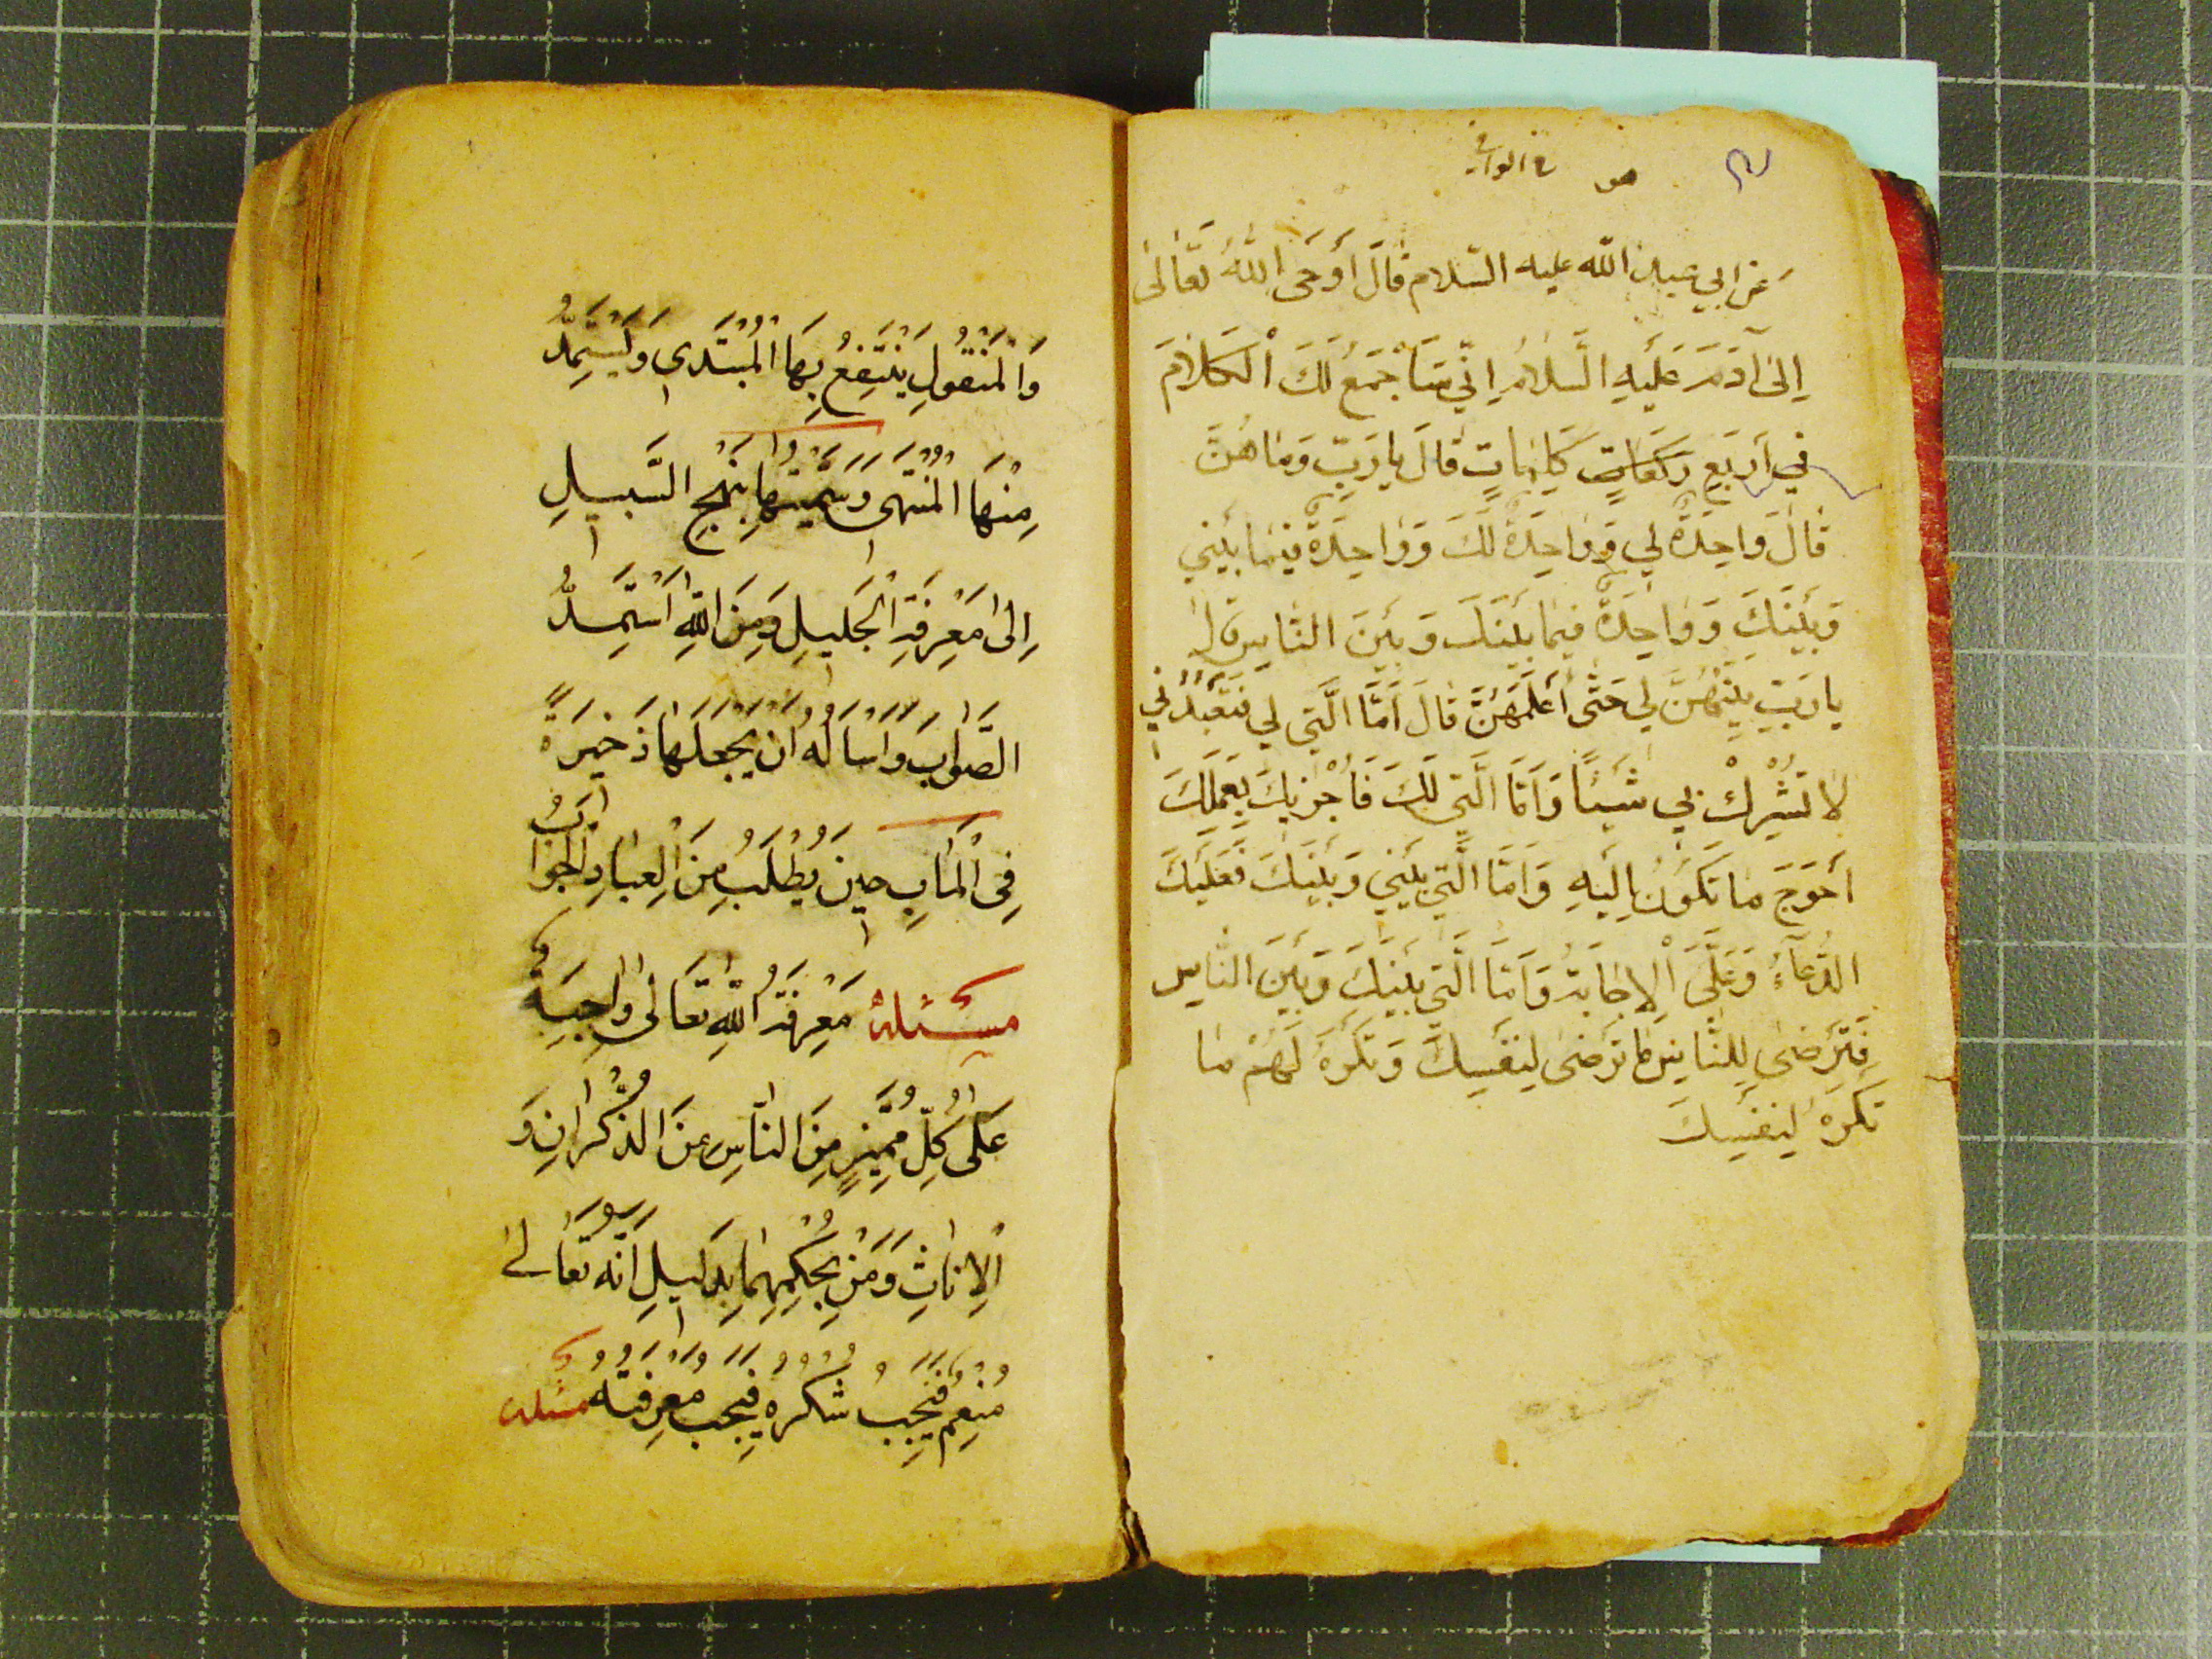 هو في الوافي
عَن ابي عبد الله عليه السّلام قَالَ أَوْحَى اللهُ تَعَالىٰ
اِلىٰ آدَمَ عَلَيْهِ السَّلامُ اِنّي سَاَجْمَعُ لَكَ الْكَلامَ
في اَرْبَعِ رَكَعَاتٍ كَلِمَاتٍ قَالَ يا رَبِّ وَمَا هُنَّ
قَالَ وَاحِدَةٌ لي وَوَاحِدَةٌ لَكَ وَوَاحِدَةٌ فيمَا بَيْني
وَبَيْنَكَ وَوَاحِدَةٌ فيمَا بَيْنَكَ وَبَيْنَ النَّاسِ قَالَ
يا رَبِّ بَيِّنْهُنَّ لي حَتّٰى أَعْلَمَهُنَّ قَالَ اَمَّا الَّتي لي فَتَعْبُدُني
لا تُشْرِكْ بي شَيْئًا وَاَمَّا الَّتي لَكَ فَاُجْزيكَ بِعَمَلِكَ
اَحْوَجَ مَا تَكُونُ اِلَيْهِ وَاَمَّا الَّتي بَيْني وَبَيْنَكَ فَعَلَيْكَ
الدُّعَآءُ وَعَلَيَّ الْاِجَابَةُ وَاَمَّا الَّتي بَيْنَكَ وَبَيْنَ النَّاسِ
فَتَرْضىٰ لِلنَّاسِ مَا تَرْضىٰ لِنَفْسِكَ وَتَكْرَهُ لَهُمْ مَا
تَكْرَهُ لِنَفْسِكَ
وَالْمَنْقُولِ يَنْتَفِعُ بِهَا الْمُبْتَدى وَيَسْتَمِدُّ
مِنْهَا الْمُنْتَهى وَسَمَّيْتُهَا بِنَهْجِ السَّبيلِ
اِلىٰ مَعْرِفَةِ الْجَليلِ وَمِنَ اللهِ اَسْتَمِدُّ
الصَّوَابَ وَاَسْاَلُهُ اَنْ يَجْعَلَهَا ذَخيرَةً
فِى الْمَآبِ حينَ يُطْلَبُ مِنَ الْعِبَادِ الْجَوَابُ
مسئلة مَعْرِفَةُ اللهِ تَعَالىٰ وَاجِبَةٌ
عَلىٰ كُلِّ مُمَيِّزٍ مِنَ النَّاسِ مِنَ الذُّكْرَانِ وَ
الْاِنَاثِ وَمَنْ بِحُكْمِهِمَا بِدَليلِ اَنَّهُ تَعَالىٰ
مُنْعِمٌ فَيَجِبُ شُكْرُهُ فَيَجِبُ مَعْرِفَتُهُ مسئلة